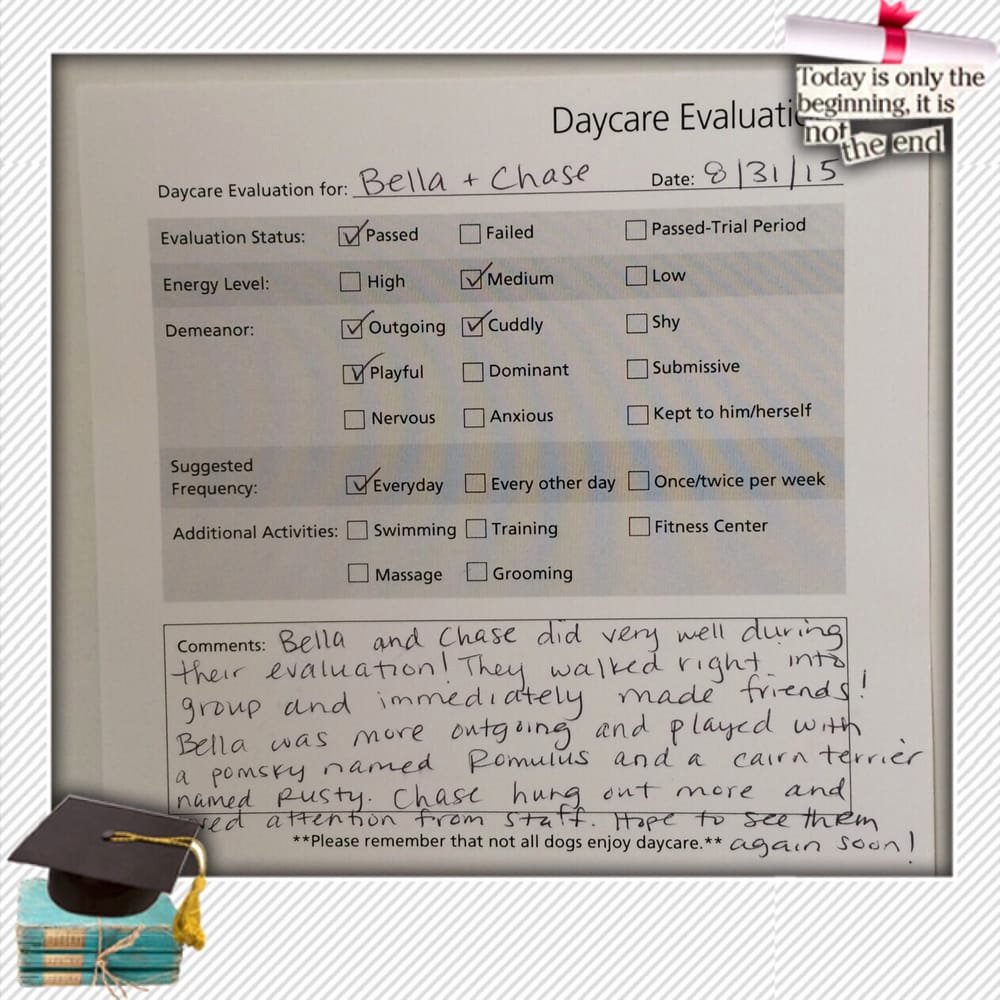 Today is only the
beginning, it is
not
the end
Daycare Evaluati
Daycare Evaluation for: Bella + Chase Date: 8/31/15
Evaluation Status: Passed Failed Passed-Trial Period
Energy Level: High Medium Low
Demeanor: Outgoing Cuddly Shy
Playful Dominant Submissive
Nervous Anxious Kept to him/herself
Suggested
Frequency: Everyday Every other day Once/twice per week
Additional Activities: Swimming Training Fitness Center
Massage Grooming
Comments: Bella and Chase did very well during
their evaluation! They walked right into
group and immediately made friends!
Bella was more outgoing and played with
a pomsky named Romulus and a cairn terrier
named Rusty. Chase hung out more and
attention from staff. Hope to see them
**Please remember that not all dogs enjoy daycare.** again soon!